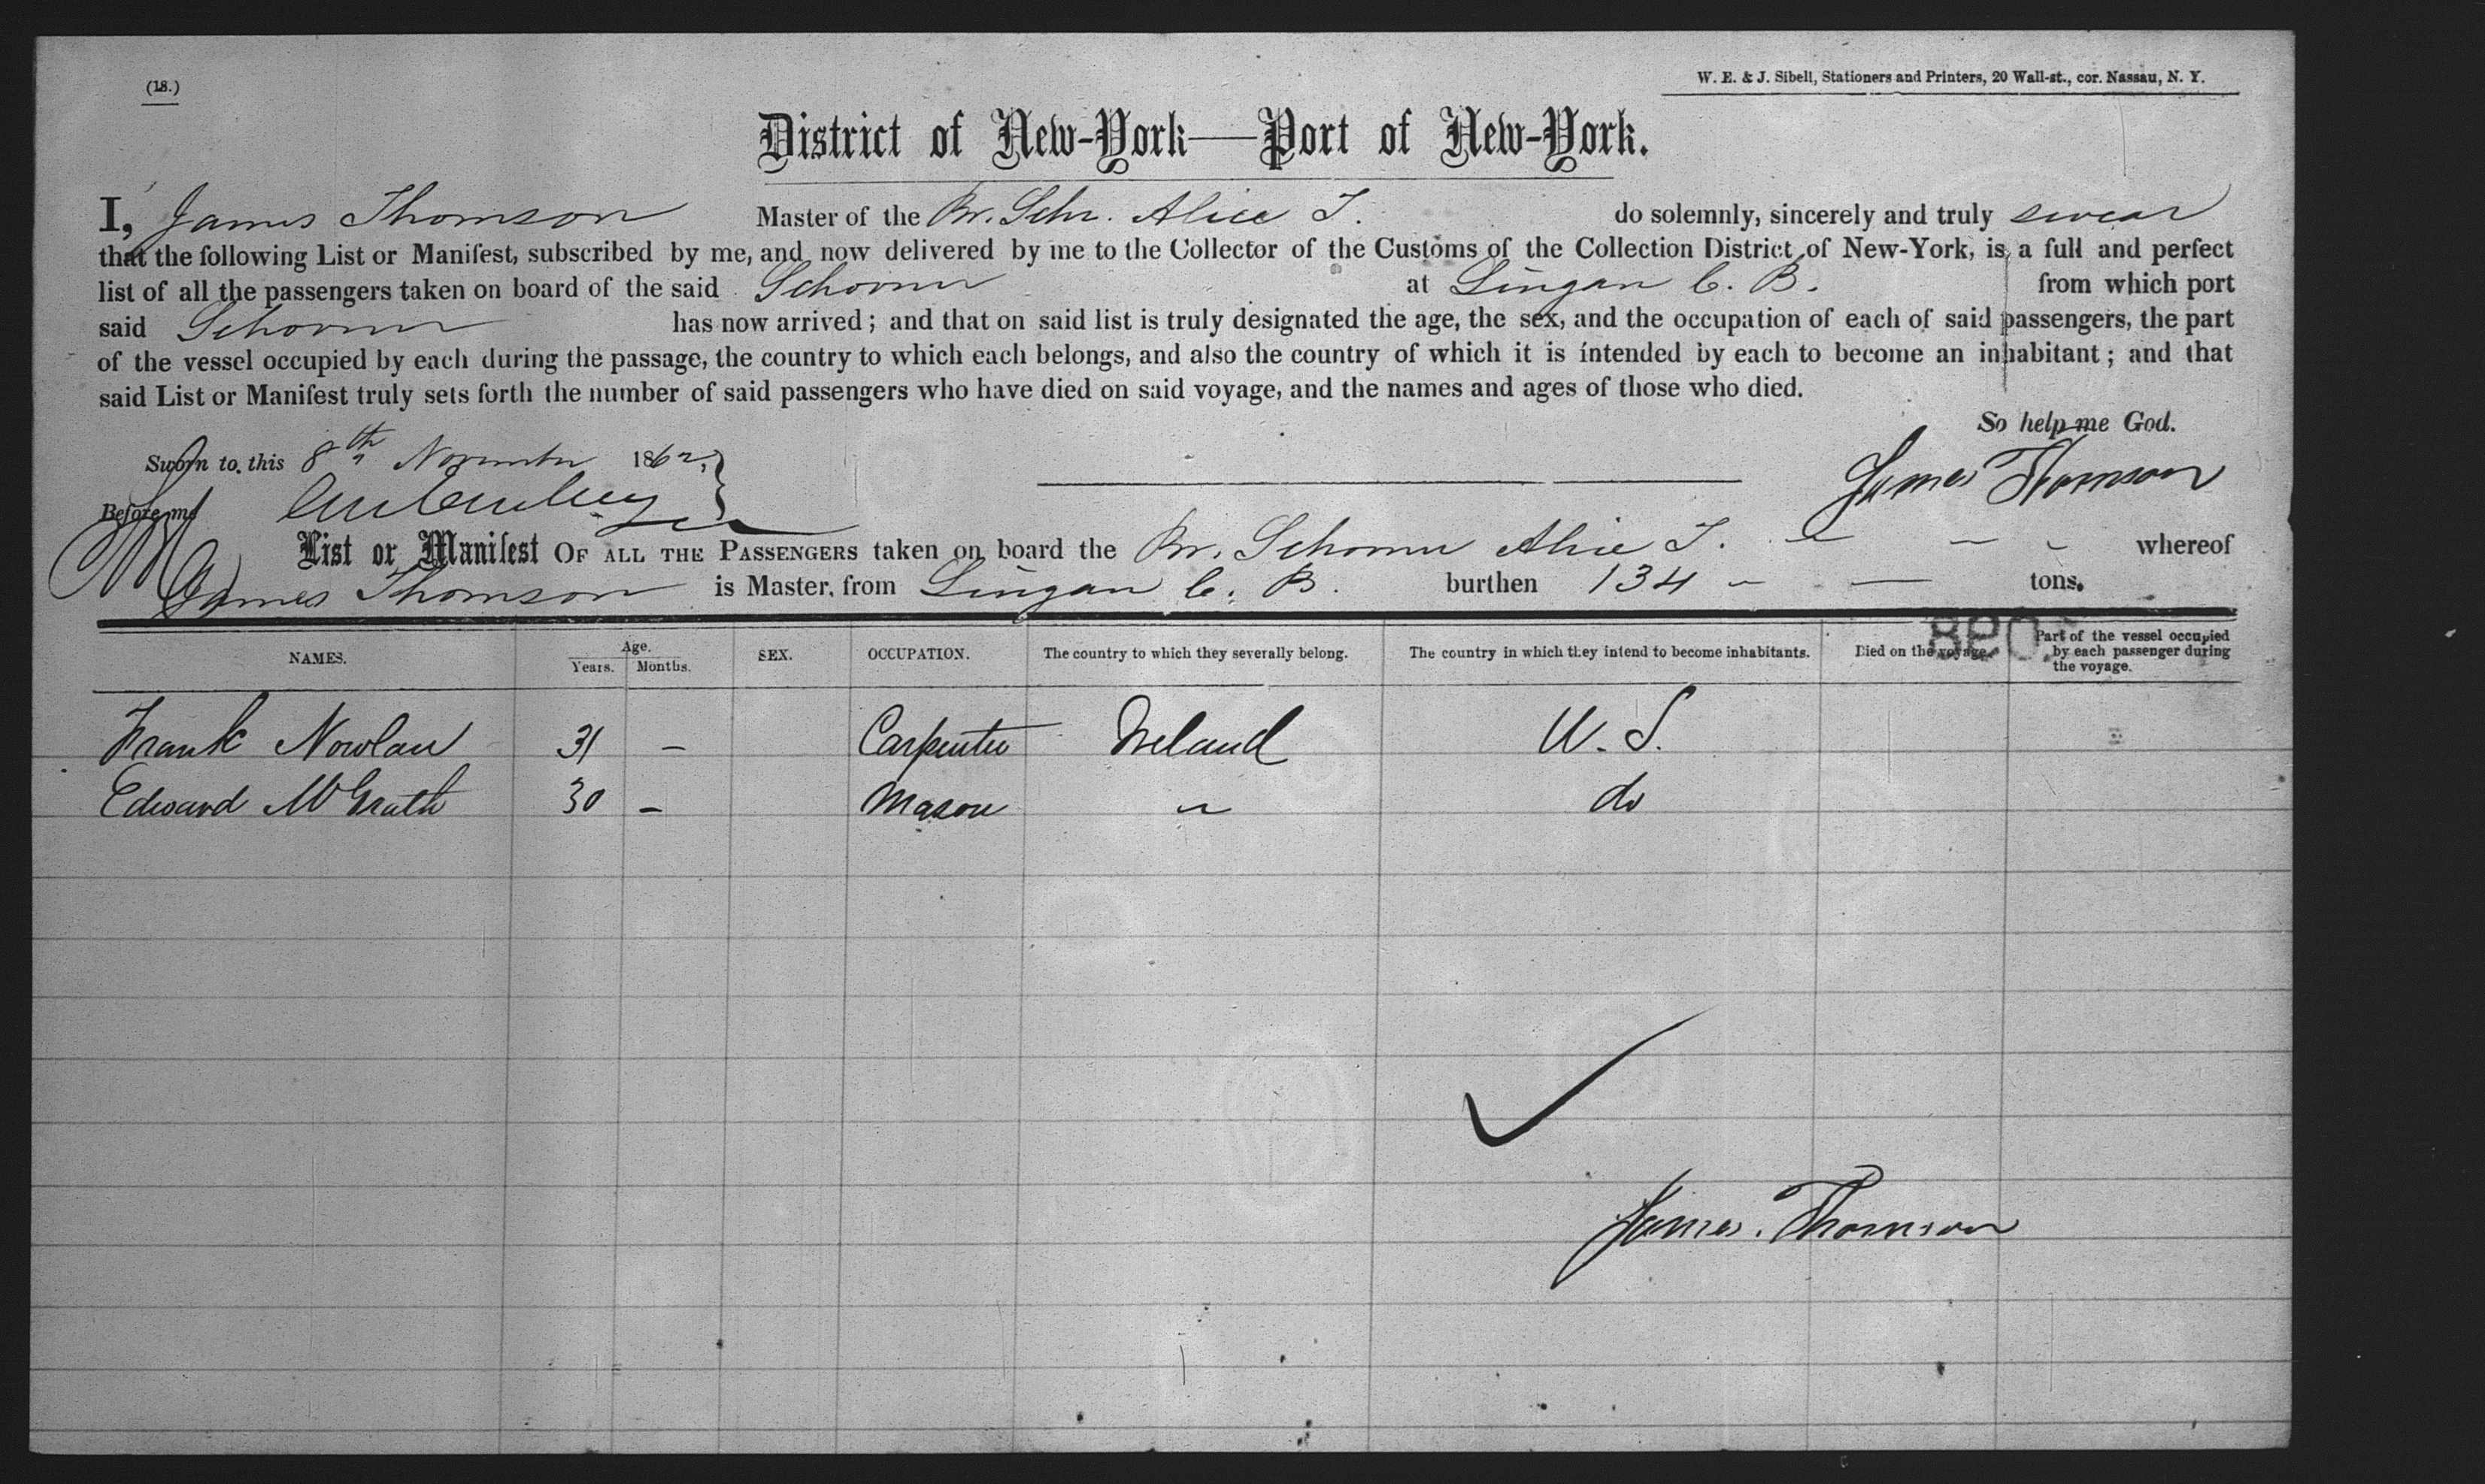 (18.)
W. E. & J. Sibell, Stationers and Printers, 20 Wall-st., cor. Nassau, N. Y.
District of New-York—Port of New-York.
I, James Thomson Master of the Br. Schr. Alice T. do solemnly, sincerely and truly swear
that the following List or Manifest, subscribed by me, and now delivered by me to the Collector of the Customs of the Collection District of New-York, is a full and perfect
list of all the passengers taken on board of the said Schooner at Lingan C. B. from which port
said Schooner has now arrived; and that on said list is truly designated the age, the sex, and the occupation of each of said passengers, the part
of the vessel occupied by each during the passage, the country to which each belongs, and also the country of which it is intended by each to become an inhabitant; and that
said List or Manifest truly sets forth the number of said passengers who have died on said voyage, and the names and ages of those who died.
So help me God.
Sworn to this 8th November 1862,
James Thomson
Before me
List or Manifest OF ALL THE PASSENGERS taken on board the Br. Schooner Alice T. whereof
James Thomson is Master, from Lingan C. B. burthen 134 tons.
NAMES. Age. Years. Months. SEX. OCCUPATION. The country to which they severally belong. The country in which they intend to become inhabitants. Died on the voyage. Part of the vessel occupied by each passenger during the voyage.
Frank Nowlan 31 – Carpenter Ireland U. S.
Edward McGrath 30 – Mason " do
James. Thomson